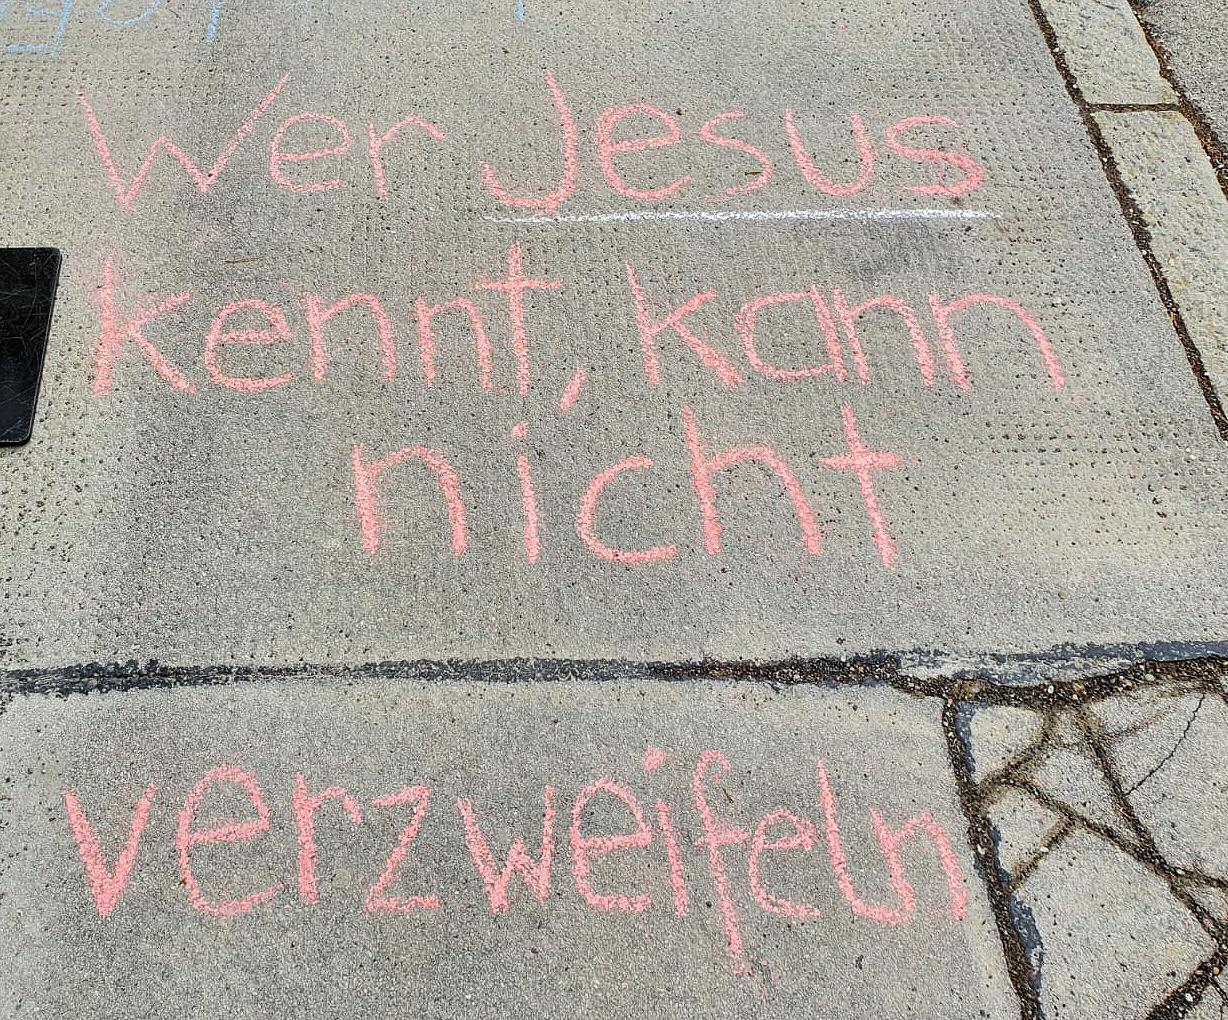 Wer Jesus
kennt, kann
nicht
verzweifeln